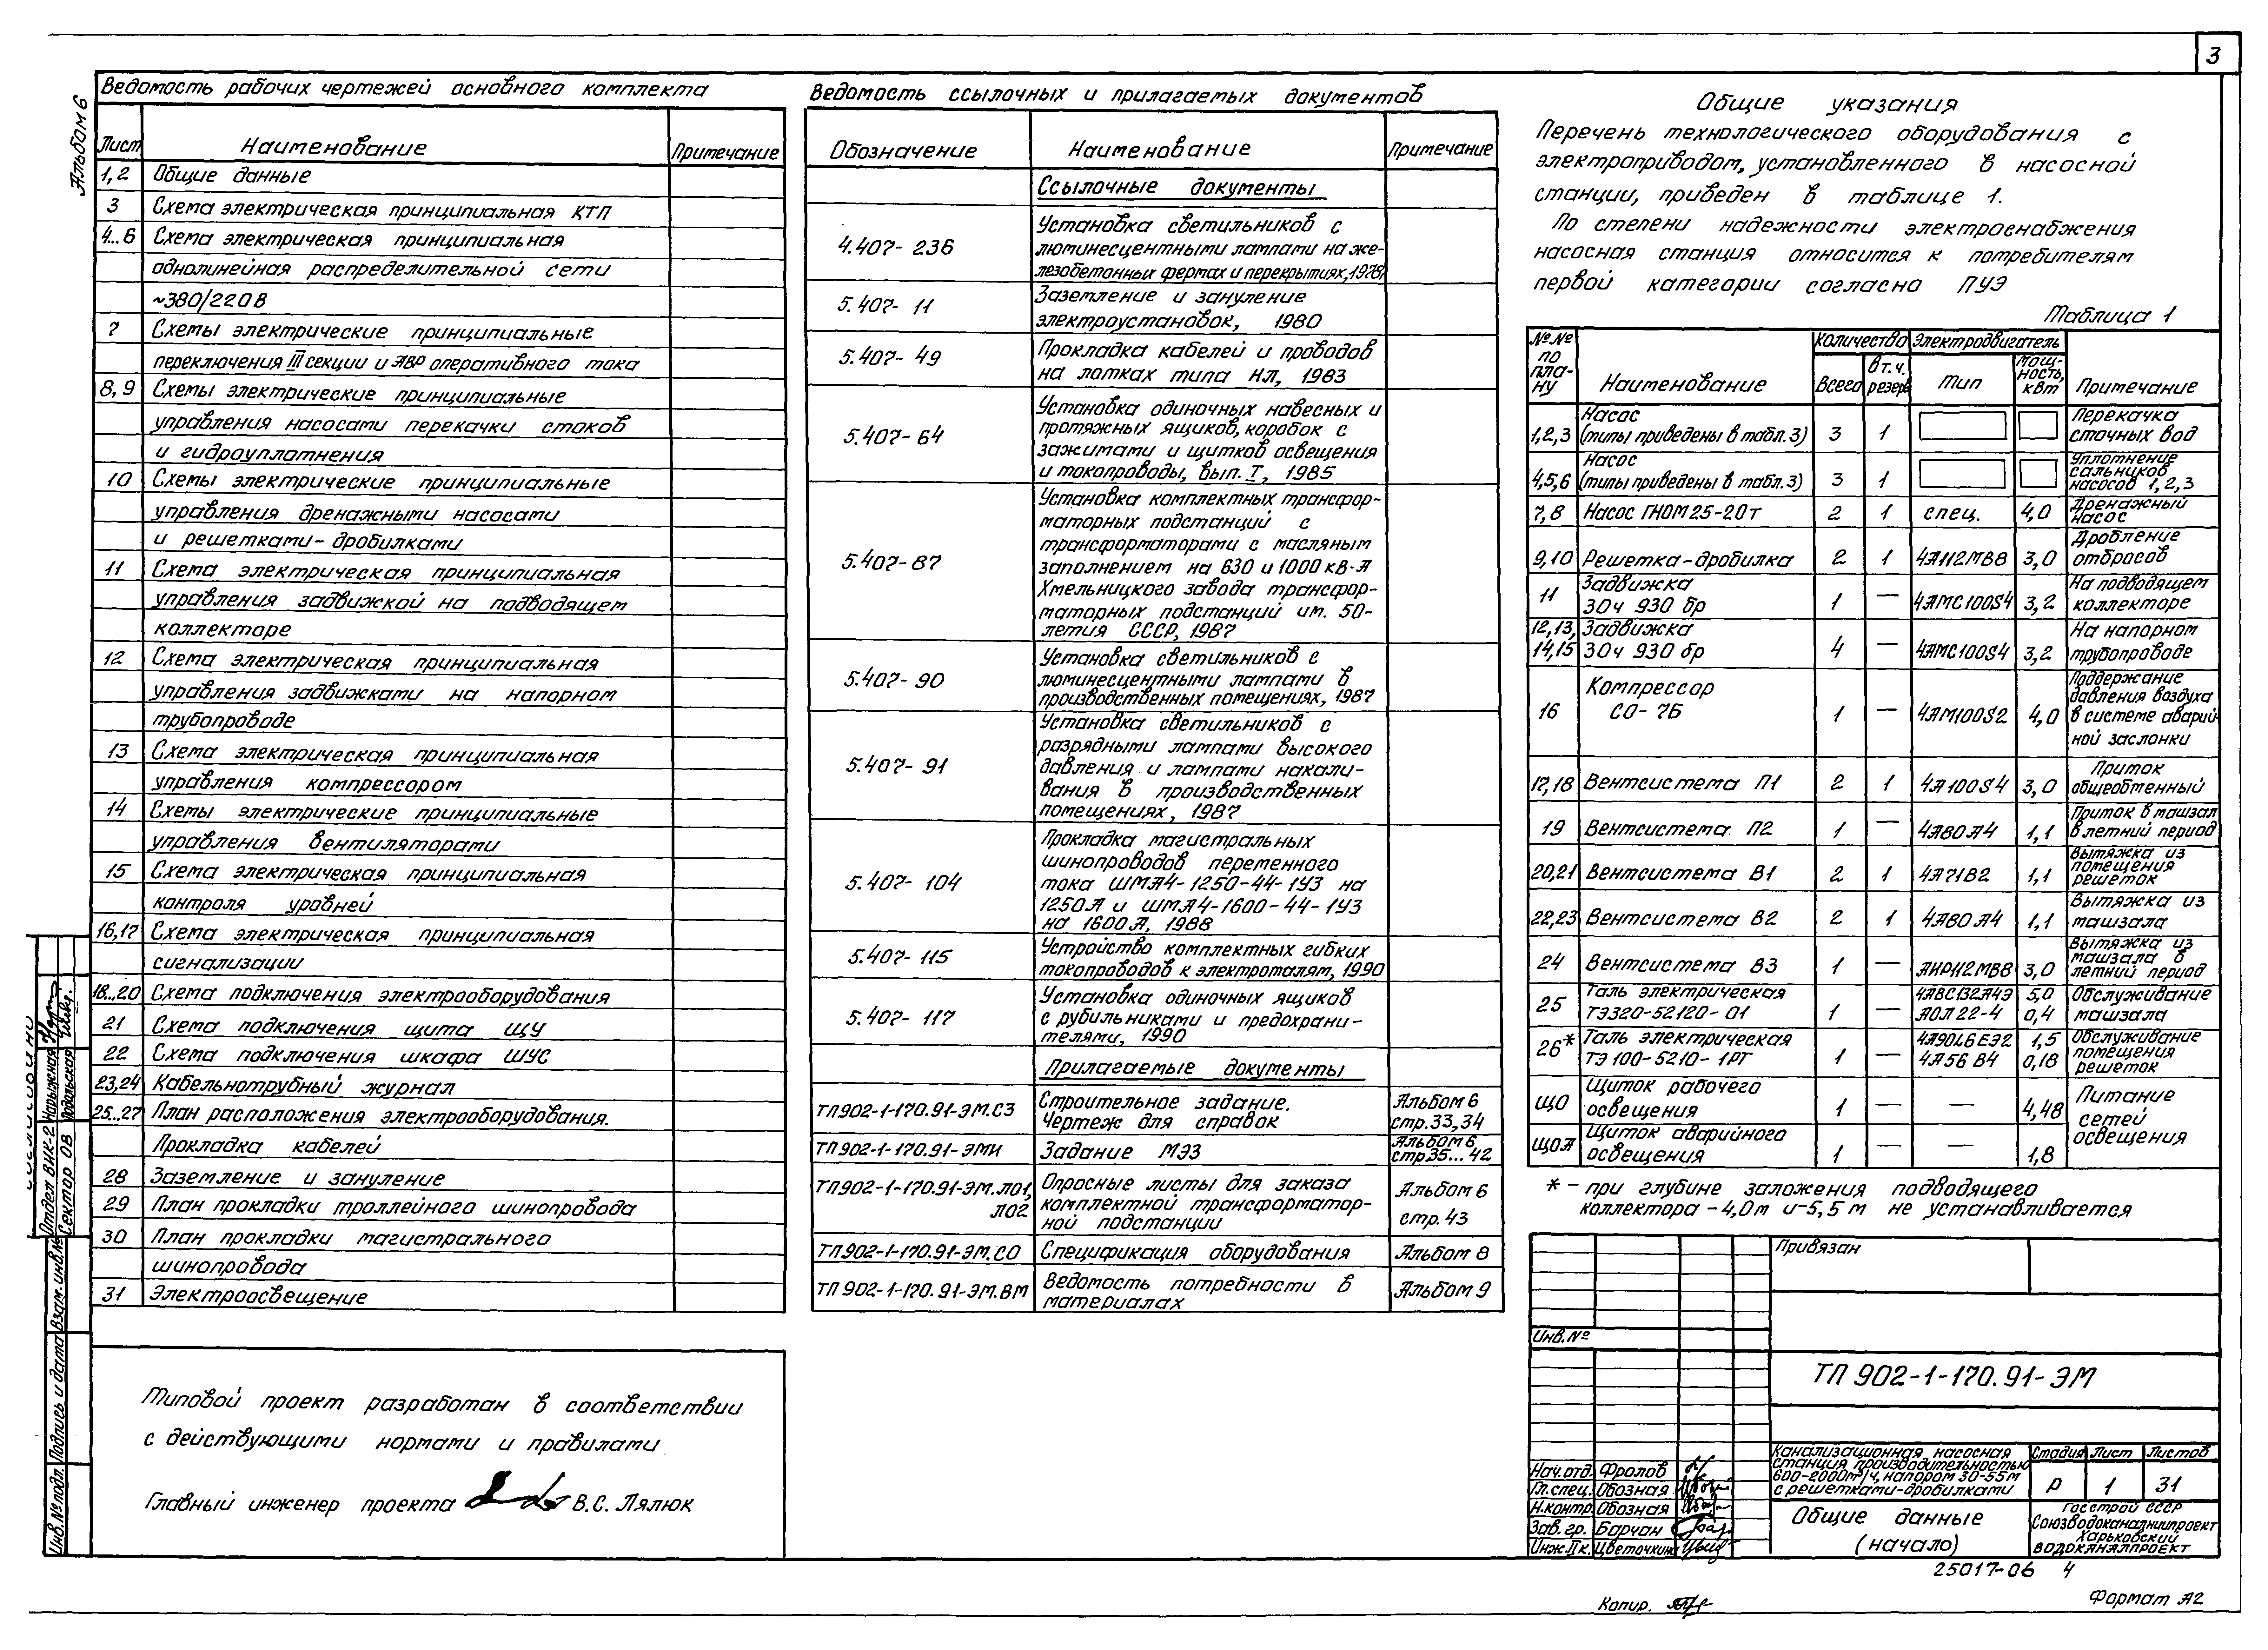 3
Альбом 6
Ведомость рабочих чертежей основного комплекта
Лист Наименование Примечание
1,2 Общие данные
3 Схема электрическая принципиальная КТП
4...6 Схема электрическая принципиальная
однолинейная распределительной сети
~380/220В
7 Схемы электрические принципиальные
переключения III секции и АВР оперативного тока
8,9 Схемы электрические принципиальные
управления насосами перекачки стоков
и гидроуплотнения
10 Схемы электрические принципиальные
управления дренажными насосами
и решетками-дробилками
11 Схема электрическая принципиальная
управления задвижкой на подводящем
коллекторе
12 Схема электрическая принципиальная
управления задвижками на напорном
трубопроводе
13 Схема электрическая принципиальная
управления компрессором
14 Схемы электрические принципиальные
управления вентиляторами
15 Схема электрическая принципиальная
контроля уровней
16,17 Схема электрическая принципиальная
сигнализации
18...20 Схема подключения электрооборудования
21 Схема подключения щита ЩУ
22 Схема подключения шкафа ШУС
23,24 Кабельнотрубный журнал
25...27 План расположения электрооборудования.
Прокладка кабелей
28 Заземление и зануление
29 План прокладки троллейного шинопровода
30 План прокладки магистрального
шинопровода
31 Электроосвещение
Типовой проект разработан в соответствии
с действующими нормами и правилами
Главный инженер проекта В.С. Лялюк
Ведомость ссылочных и прилагаемых документов
Обозначение Наименование Примечание
Ссылочные документы
4.407-236 Установка светильников с
люминесцентными лампами на же-
лезобетонных фермах и перекрытиях, 1978г
5.407-11 Заземление и зануление
электроустановок, 1980
5.407-49 Прокладка кабелей и проводов
на лотках типа НЛ, 1983
5.407-64 Установка одиночных навесных и
протяжных ящиков, коробок с
зажимами и щитков освещения
и токопроводы, вып. I, 1985
5.407-87 Установка комплектных трансфор-
маторных подстанций с
трансформаторами с масляным
заполнением на 630 и 1000 кВ·А
Хмельницкого завода трансфор-
маторных подстанций им. 50-
летия СССР, 1987
5.407-90 Установка светильников с
люминесцентными лампами в
производственных помещениях, 1987
5.407-91 Установка светильников с
разрядными лампами высокого
давления и лампами накали-
вания в производственных
помещениях, 1987
5.407-104 Прокладка магистральных
шинопроводов переменного
тока ШМА4-1250-44-1У3 на
1250А и ШМА4-1600-44-1У3
на 1600А, 1988
5.407-115 Устройство комплектных гибких
токопроводов к электроталям, 1990
5.407-117 Установка одиночных ящиков
с рубильниками и предохрани-
телями, 1990
Прилагаемые документы
ТП902-1-170.91-ЭМ.СЗ Строительное задание. Альбом 6
Чертеж для справок стр.33,34
ТП902-1-170.91-ЭМИ Задание МЭЗ Альбом 6, стр.35...42
ТП902-1-170.91-ЭМ.ЛО1, Опросные листы для заказа Альбом 6
ЛО2 комплектной трансформатор- стр.43
ной подстанции
ТП902-1-170.91-ЭМ.СО Спецификация оборудования Альбом 8
ТП902-1-170.91-ЭМ.ВМ Ведомость потребности в Альбом 9
материалах
Общие указания
Перечень технологического оборудования с
электроприводом, установленного в насосной
станции, приведен в таблице 1.
По степени надежности электроснабжения
насосная станция относится к потребителям
первой категории согласно ПУЭ
Таблица 1
№№ по пла-ну Наименование Количество Электродвигатель Примечание
Всего В т.ч. резерв Тип Мощ-ность, кВт
1,2,3 Насос (типы приведены в табл.3) 3 1 Перекачка сточных вод
4,5,6 Насос (типы приведены в табл.3) 3 1 Уплотнение сальников насосов 1,2,3
7,8 Насос ГНОМ 25-20т 2 1 спец. 4,0 Дренажный насос
9,10 Решетка-дробилка 2 1 4А112МВ8 3,0 Дробление отбросов
11 Задвижка 30ч 930 бр 1 — 4АМС100S4 3,2 На подводящем коллекторе
12,13, 14,15 Задвижка 30ч 930 бр 4 — 4АМС100S4 3,2 На напорном трубопроводе
16 Компрессор СО-7Б 1 — 4АМ100S2 4,0 Поддержание давления воздуха в системе аварий-ной заслонки
17,18 Вентсистема П1 2 1 4А100S4 3,0 Приток общеобменный
19 Вентсистема П2 1 — 4А80А4 1,1 Приток в машзал в летний период
20,21 Вентсистема В1 2 1 4А71В2 1,1 Вытяжка из помещения решеток
22,23 Вентсистема В2 2 1 4А80А4 1,1 Вытяжка из машзала
24 Вентсистема В3 1 — АИР112МВ8 3,0 Вытяжка из машзала в летний период
25 Таль электрическая ТЭ320-52120-01 1 — 4АВС132А4Э 5,0 АОЛ22-4 0,4 Обслуживание машзала
26* Таль электрическая ТЭ100-5210-1РТ 1 — 4А90L6ЕЭ2 1,5 4А56В4 0,18 Обслуживание помещения решеток
ЩО Щиток рабочего освещения 1 — — 4,48 Питание сетей освещения
ЩОА Щиток аварийного освещения 1 — — 1,8
* - при глубине заложения подводящего
коллектора -4,0м и -5,5 м не устанавливается
Привязан
Инв.№
ТП 902-1-170.91-ЭМ
Канализационная насосная
станция производительностью
600-2000м³/ч, напором 30-55м
с решетками-дробилками
Стадия Лист Листов
Р 1 31
Нач.отд. Фролов
Гл.спец. Обозная
Н.контр. Обозная
Зав.гр. Барчан
Инж.IIк. Цветочкина
Общие данные
(начало)
Госстрой СССР
Союзводоканалниипроект
Харьковский
Водоканалпроект
25017-06 4
Копир.
Формат А2
Согласовано
Отдел ВИК-2 Нарыжная
Сектор ОВ Подольская
Взам.инв.№
Подпись и дата
Инв.№ подл.